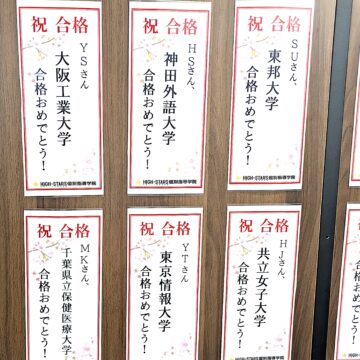 祝 合格
YSさん
大阪工業大学
合格おめでとう！
HIGH-STARS個別指導学院
祝 合格
HSさん、
神田外語大学
合格おめでとう！
HIGH-STARS個別指導学院
祝 合格
SUさん、
東邦大学
合格おめでとう！
HIGH-STARS個別指導学院
祝 合格
MKさん、
千葉県立保健医療大学
合格おめでとう！
祝 合格
YTさん
東京情報大学
合格おめでとう！
祝 合格
HJさん、
共立女子大学
合格おめでとう！